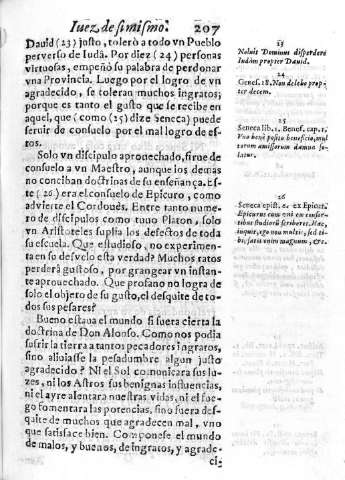 Iuez de si mismo. 207
Dauid (23) justo, tolerò a todo vn Pueblo
peruerso de Iudà. Por diez (24) personas
virtuosas, empeñó su palabra de perdonar
vna Prouincia. Luego por el logro de vn
agradecido, se toleran muchos ingratos;
porque es tanto el gusto que se recibe en
aquel, que (como (25) dize Seneca) puede
seruir de consuelo por el mal logro de es-
tos.
Solo vn discipulo aprouechado, sirue de
consuelo a vn Maestro, aunque los demas
no conciban doctrinas de su enseñança. Es-
te (26) era el consuelo de Epicuro, como
advierte el Cordoués. Entre tanto nume-
ro de discipulos como tuuo Platon, solo
vn Aristoteles suplia los defectos de toda
su escuela. Que estudioso, no experimen-
ta en su desvelo esta verdad? Muchos ratos
perderà gustoso, por grangear vn instan-
te aprouechado. Que profano no logra de
solo el objeto de su gusto, el desquite de to-
dos sus pesares?
Bueno estaua el mundo si fuera cierta la
doctrina de Don Alonso. Como nos podia
sufrir la tierra a tantos pecadores ingratos,
sino aliuiasse la pesadumbre algun justo
agradecido? Ni el Sol comunicara sus lu-
zes, ni los Astros sus benignas influencias,
ni el ayre alentara nuestras vidas, ni el fue-
go fomentara las potencias, sino fuera des-
quite de muchos que agradecen mal, vno
que satisface bien. Componese el mundo
de malos, y buenos, de ingratos, y agrade-
ci-
23
Noluit Dominus disperdere
Iudam propter Dauid.
24
Genes. 18. Non delebo prop-
ter decem.
25
Seneca lib. 1. Benef. cap. 1.
Vna benè posito beneficio, mul-
torum amissorum damna so-
latur.
26
Seneca epist. ex Epicur.
Epicurus cum vni ex consor-
tibus studiorum scriberet. Hæc,
inquit, ego non multis, sed ti-
bi; satis enim magnum, &c.